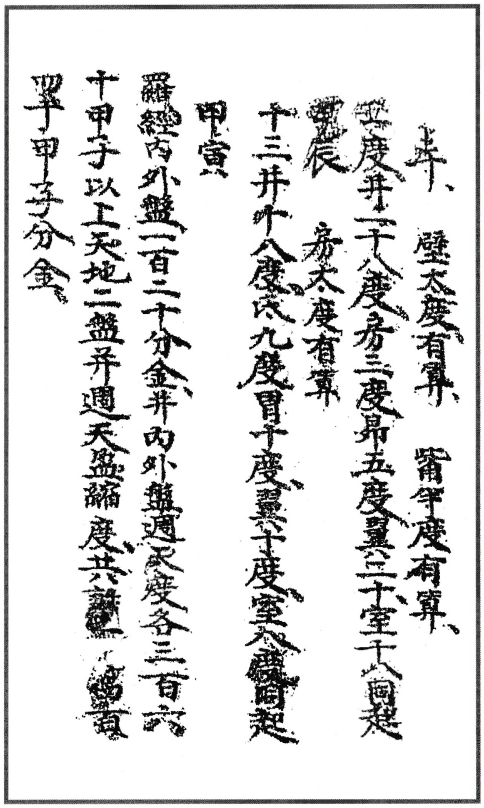 壁太度有算 觜半度有算
五度井二十八度房三度昴五度翼二十室十八同起
辰 房太度有算
十三井十八度氐九度胃十度翼十度室八度同起
甲寅
羅經內外盤一百二十分金井內外盤週天度各三百六
十甲子以上天地二盤井週天盈縮度共
甲子分金